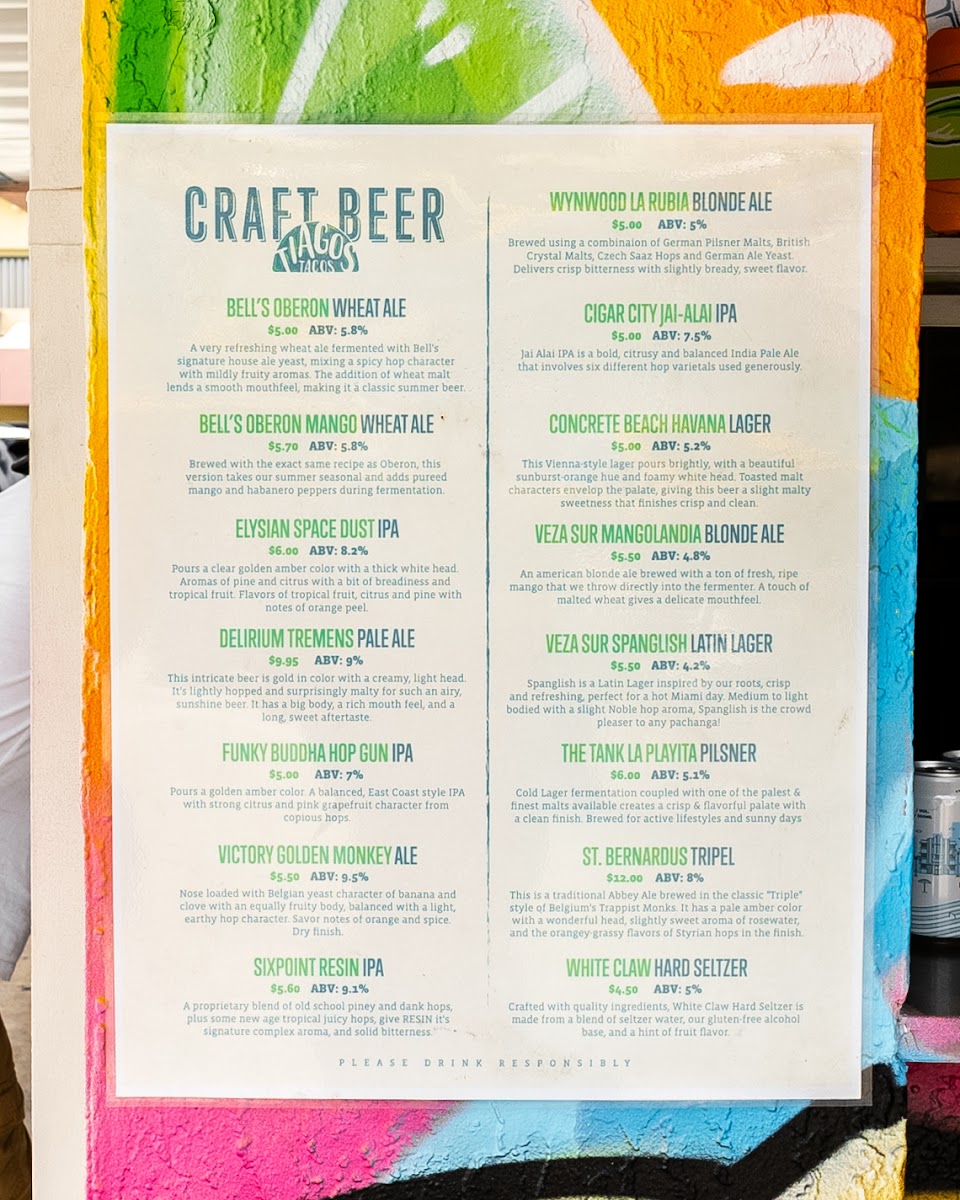 CRAFT BEER
TIAGOS
TACOS
BELL'S OBERON WHEAT ALE
$5.00 ABV: 5.8%
A very refreshing wheat ale fermented with Bell's
signature house ale yeast, mixing a spicy hop character
with mildly fruity aromas. The addition of wheat malt
lends a smooth mouthfeel, making it a classic summer beer.
BELL'S OBERON MANGO WHEAT ALE
$5.70 ABV: 5.8%
Brewed with the exact same recipe as Oberon, this
version takes our summer seasonal and adds pureed
mango and habanero peppers during fermentation.
ELYSIAN SPACE DUST IPA
$6.00 ABV: 8.2%
Pours a clear golden amber color with a thick white head.
Aromas of pine and citrus with a bit of breadiness and
tropical fruit. Flavors of tropical fruit, citrus and pine with
notes of orange peel.
DELIRIUM TREMENS PALE ALE
$9.95 ABV: 9%
This intricate beer is gold in color with a creamy, light head.
It's lightly hopped and surprisingly malty for such an airy,
sunshine beer. It has a big body, a rich mouth feel, and a
long, sweet aftertaste.
FUNKY BUDDHA HOP GUN IPA
$5.00 ABV: 7%
Pours a golden amber color. A balanced, East Coast style IPA
with strong citrus and pink grapefruit character from
copious hops.
VICTORY GOLDEN MONKEY ALE
$5.50 ABV: 9.5%
Nose loaded with Belgian yeast character of banana and
clove with an equally fruity body, balanced with a light,
earthy hop character. Savor notes of orange and spice.
Dry finish.
SIXPOINT RESIN IPA
$5.60 ABV: 9.1%
A proprietary blend of old school piney and dank hops,
plus some new age tropical juicy hops, give RESIN it's
signature complex aroma, and solid bitterness.
WYNWOOD LA RUBIA BLONDE ALE
$5.00 ABV: 5%
Brewed using a combinaion of German Pilsner Malts, British
Crystal Malts, Czech Saaz Hops and German Ale Yeast.
Delivers crisp bitterness with slightly bready, sweet flavor.
CIGAR CITY JAI-ALAI IPA
$5.00 ABV: 7.5%
Jai Alai IPA is a bold, citrusy and balanced India Pale Ale
that involves six different hop varietals used generously.
CONCRETE BEACH HAVANA LAGER
$5.00 ABV: 5.2%
This Vienna-style lager pours brightly, with a beautiful
sunburst-orange hue and foamy white head. Toasted malt
characters envelop the palate, giving this beer a slight malty
sweetness that finishes crisp and clean.
VEZA SUR MANGOLANDIA BLONDE ALE
$5.50 ABV: 4.8%
An american blonde ale brewed with a ton of fresh, ripe
mango that we throw directly into the fermenter. A touch of
malted wheat gives a delicate mouthfeel.
VEZA SUR SPANGLISH LATIN LAGER
$5.50 ABV: 4.2%
Spanglish is a Latin Lager inspired by our roots, crisp
and refreshing, perfect for a hot Miami day. Medium to light
bodied with a slight Noble hop aroma, Spanglish is the crowd
pleaser to any pachanga!
THE TANK LA PLAYITA PILSNER
$6.00 ABV: 5.1%
Cold Lager fermentation coupled with one of the palest &
finest malts available creates a crisp & flavorful palate with
a clean finish. Brewed for active lifestyles and sunny days
ST. BERNARDUS TRIPEL
$12.00 ABV: 8%
This is a traditional Abbey Ale brewed in the classic "Triple"
style of Belgium's Trappist Monks. It has a pale amber color
with a wonderful head, slightly sweet aroma of rosewater,
and the orangey-grassy flavors of Styrian hops in the finish.
WHITE CLAW HARD SELTZER
$4.50 ABV: 5%
Crafted with quality ingredients, White Claw Hard Seltzer is
made from a blend of seltzer water, our gluten-free alcohol
base, and a hint of fruit flavor.
PLEASE DRINK RESPONSIBLY